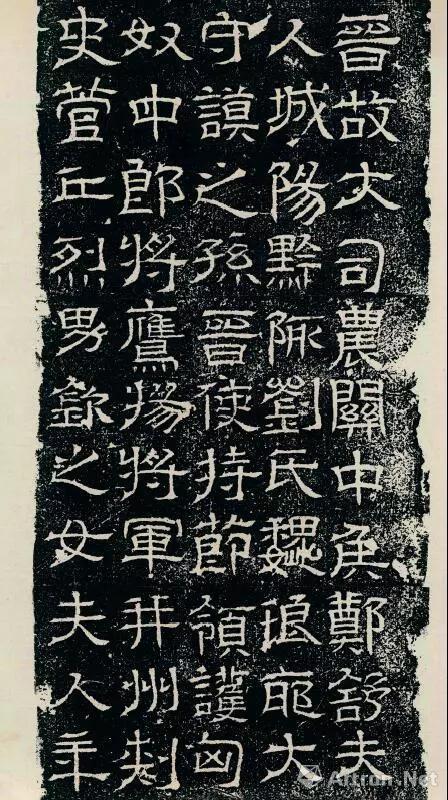 晉故大司農關中侯鄭舒夫
人城陽黔陬劉氏魏琅耶大
守謨之孫晉使持節領護匈
奴中郎將鷹揚將軍并州刾
史菅丘烈男欽之女夫人年
Artron.Net